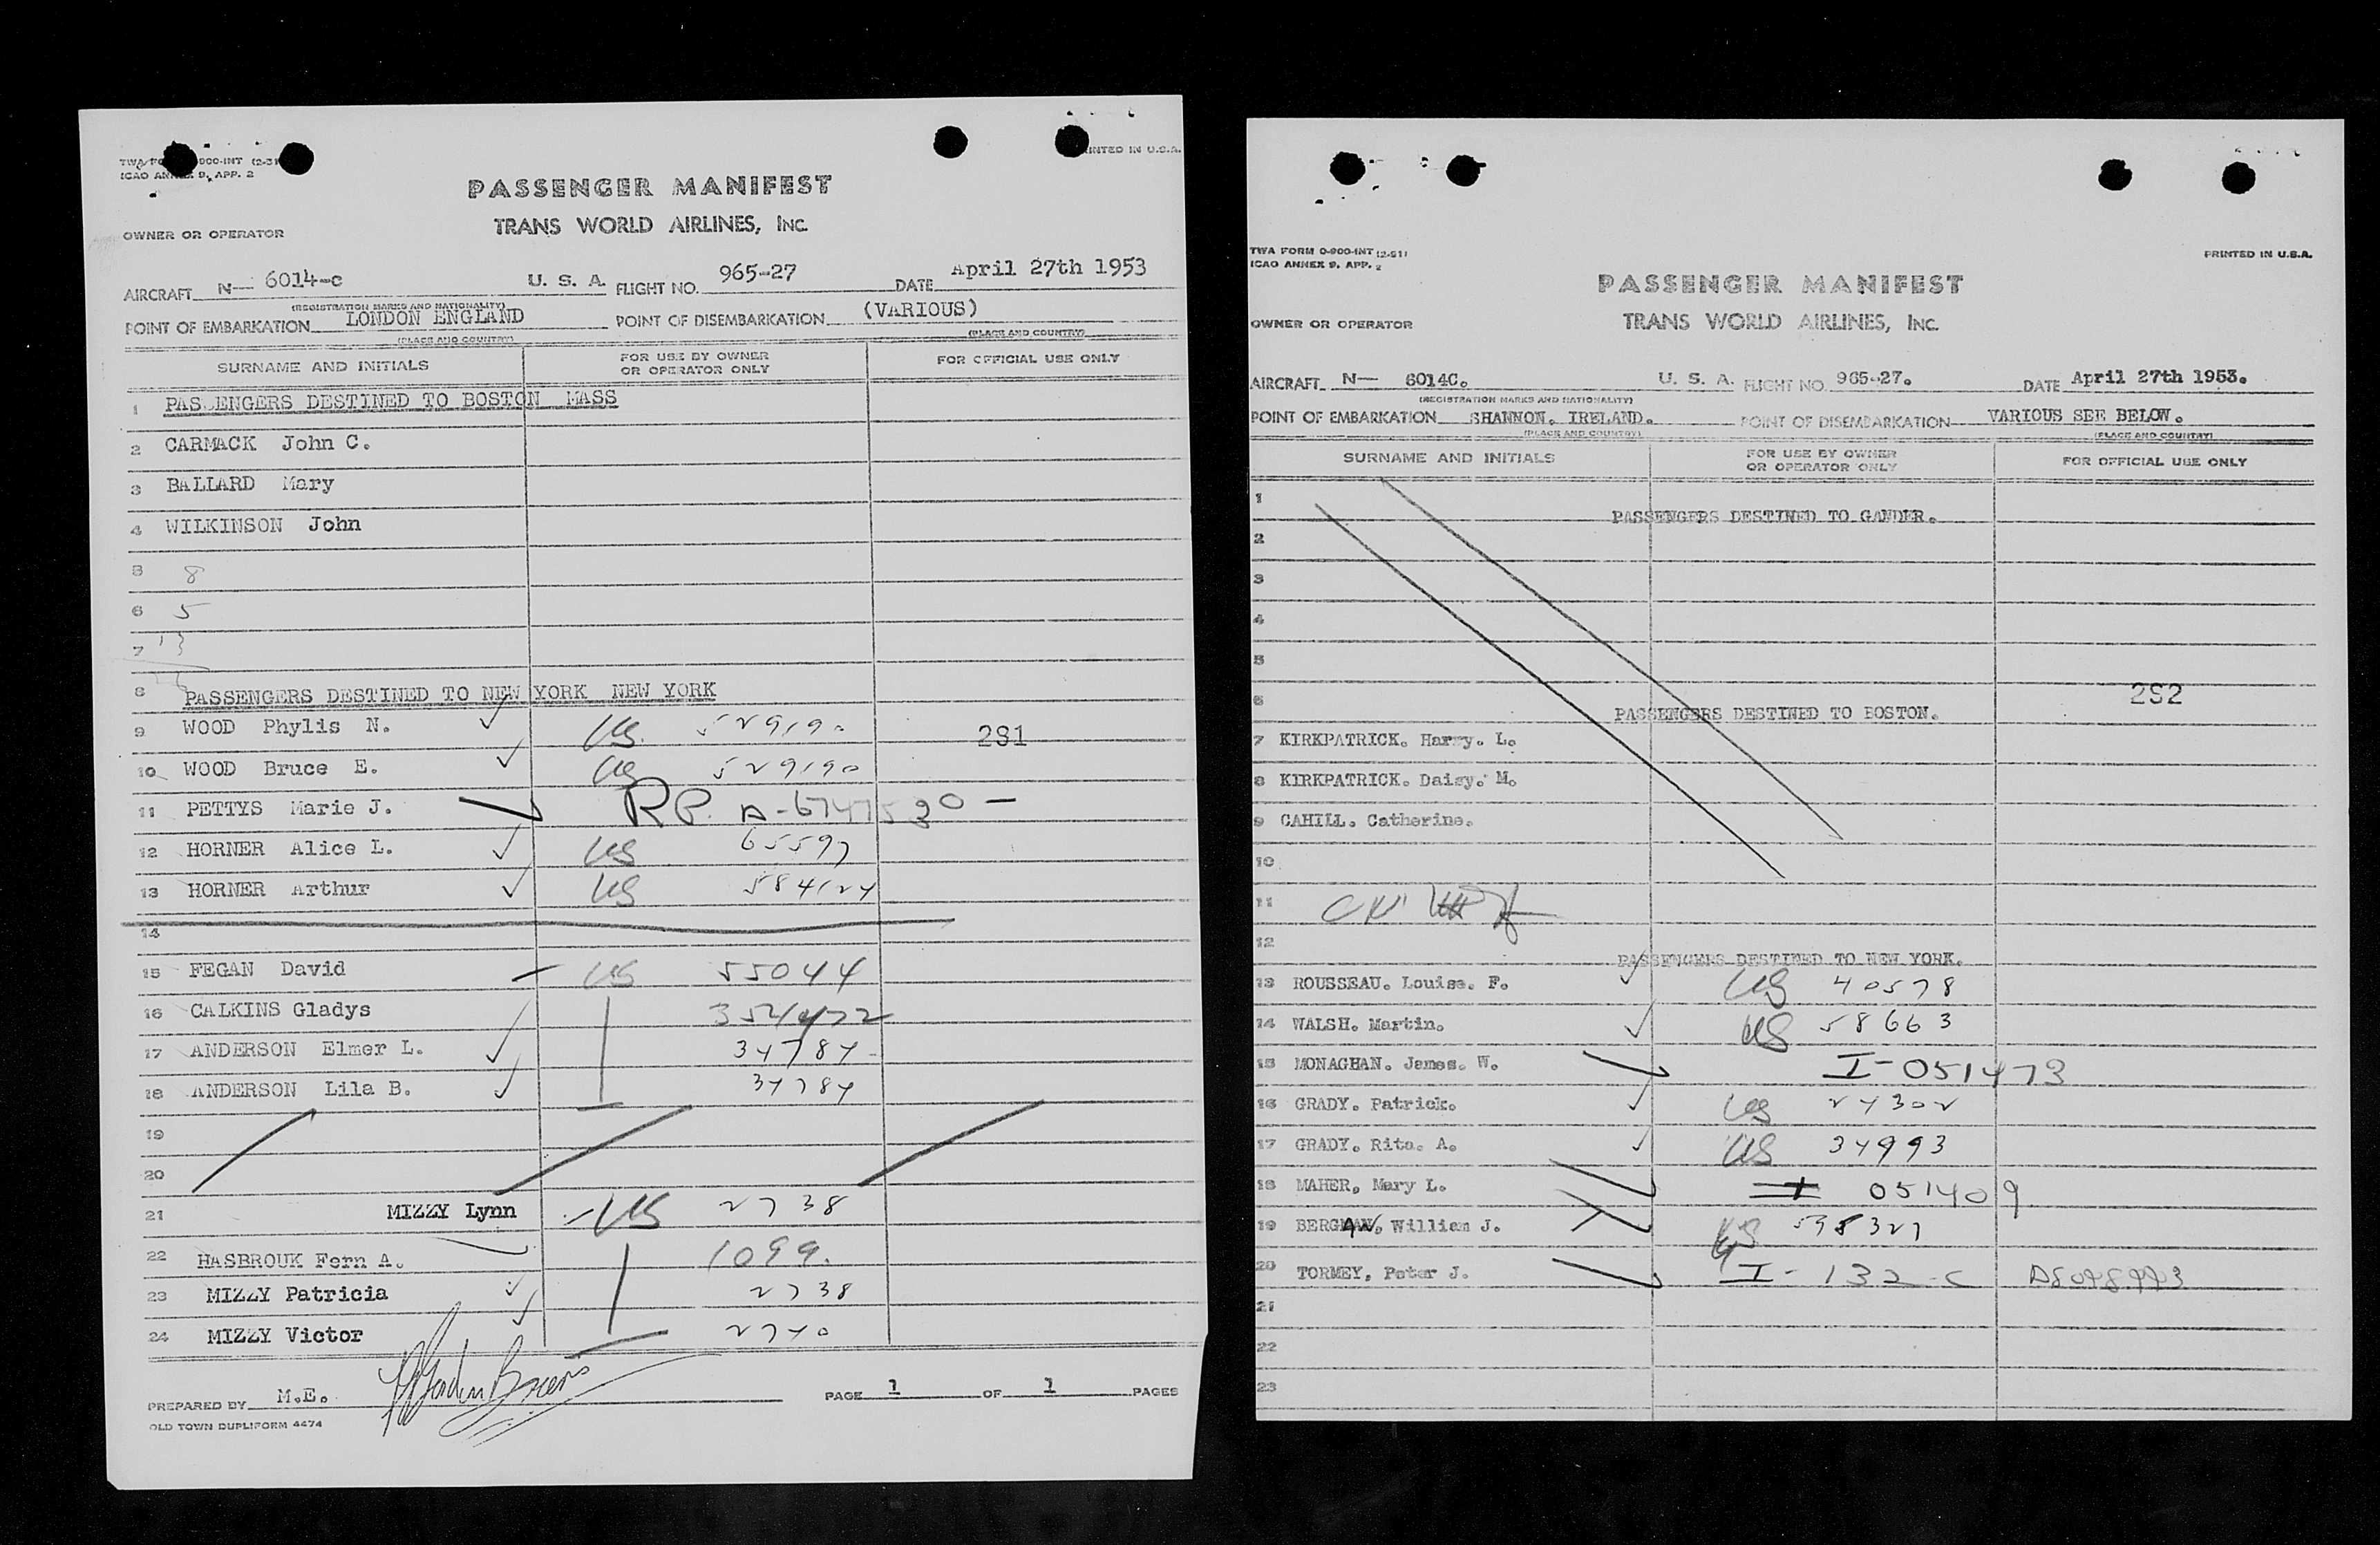 PRINTED IN U.S.A.
ICAO ANNEX 9, APP. 2
PASSENGER MANIFEST
TRANS WORLD AIRLINES, INC.
OWNER OR OPERATOR
AIRCRAFT N— 6014-c U. S. A. FLIGHT NO. 965-27 DATE April 27th 1953
(REGISTRATION MARKS AND NATIONALITY)
POINT OF EMBARKATION LONDON ENGLAND POINT OF DISEMBARKATION (VARIOUS)
(PLACE AND COUNTRY) (PLACE AND COUNTRY)
SURNAME AND INITIALS FOR USE BY OWNER OR OPERATOR ONLY FOR OFFICIAL USE ONLY
1 PASSENGERS DESTINED TO BOSTON MASS
2 CARMACK John C.
3 BALLARD Mary
4 WILKINSON John
5 8
6 5
7 13
8 PASSENGERS DESTINED TO NEW YORK NEW YORK
9 WOOD Phylis N. US 529190 281
10 WOOD Bruce E. US 529190
11 PETTYS Marie J. RP A-6747530 —
12 HORNER Alice L. US 65597
13 HORNER Arthur US 584124
14
15 FEGAN David US 55044
16 CALKINS Gladys
17 ANDERSON Elmer L. 34784
18 ANDERSON Lila B. 34784
19
20
21 MIZZY Lynn US 2738
22 HASBROUK Fern A. 1099.
23 MIZZY Patricia 2738
24 MIZZY Victor 2740
PREPARED BY M.E. PAGE 1 OF 1 PAGES
OLD TOWN DUPLIFORM 4474
TWA FORM 0-900-INT (2-51)
ICAO ANNEX 9, APP. 2
PRINTED IN U.S.A.
PASSENGER MANIFEST
TRANS WORLD AIRLINES, INC.
OWNER OR OPERATOR
AIRCRAFT N— 6014C. U. S. A. FLIGHT NO. 965-27. DATE April 27th 1953.
(REGISTRATION MARKS AND NATIONALITY)
POINT OF EMBARKATION SHANNON. IRELAND. POINT OF DISEMBARKATION VARIOUS SEE BELOW.
(PLACE AND COUNTRY) (PLACE AND COUNTRY)
SURNAME AND INITIALS FOR USE BY OWNER OR OPERATOR ONLY FOR OFFICIAL USE ONLY
1
PASSENGERS DESTINED TO GANDER.
2
3
4
5
6 282
PASSENGERS DESTINED TO BOSTON.
7 KIRKPATRICK. Harry. L.
8 KIRKPATRICK. Daisy. M.
9 CAHILL. Catherine.
10
11
12
PASSENGERS DESTINED TO NEW YORK.
13 ROUSSEAU. Louise. F. US 40578
14 WALSH. Martin. US 58663
15 MONAGHAN. James. W. I-051473
16 GRADY. Patrick. US 24302
17 GRADY. Rita. A. US 34993
18 MAHER, Mary L. I 051409
19 William J. US 598327
20 TORMEY, Peter J. I-132-C
21
22
23